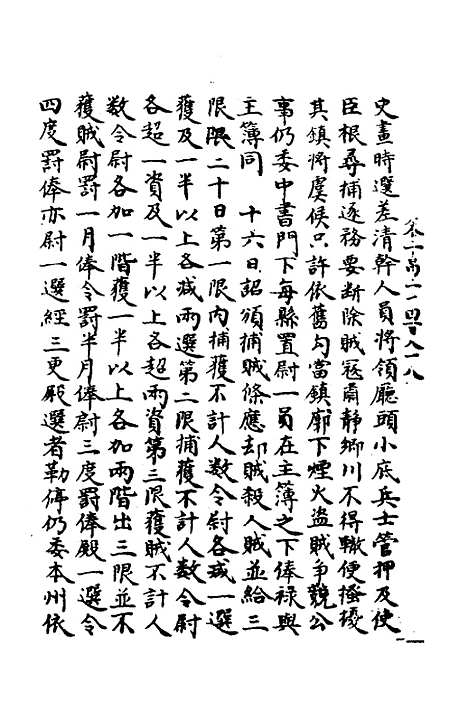 史畫時選差清幹人員將領廳頭小底兵士管押及使
臣根尋捕逐務要斷除賊寇肅靜鄉川不得輙便搔擾
其鎮將虞候只許依舊勾當鎮郭下煙火盜賊爭競公
事仍委中書門下每縣置尉一員在主簿之下俸祿與
主簿同 十六日詔頒捕賊條應却賊殺人賊並給三
限限二十日第一限內捕獲不計人數令尉各減一選
獲及一半以上各減兩選第二限捕獲不計人數令尉
各超一資及一半以上各超兩資第三限獲賊不計人
數令尉各加一階獲一半以上各加兩階出三限並不
獲賊尉罰一月俸令罰半月俸尉三度罰俸殿一選令
四度罰俸亦尉一選經三更殿選者勒停仍委本州依